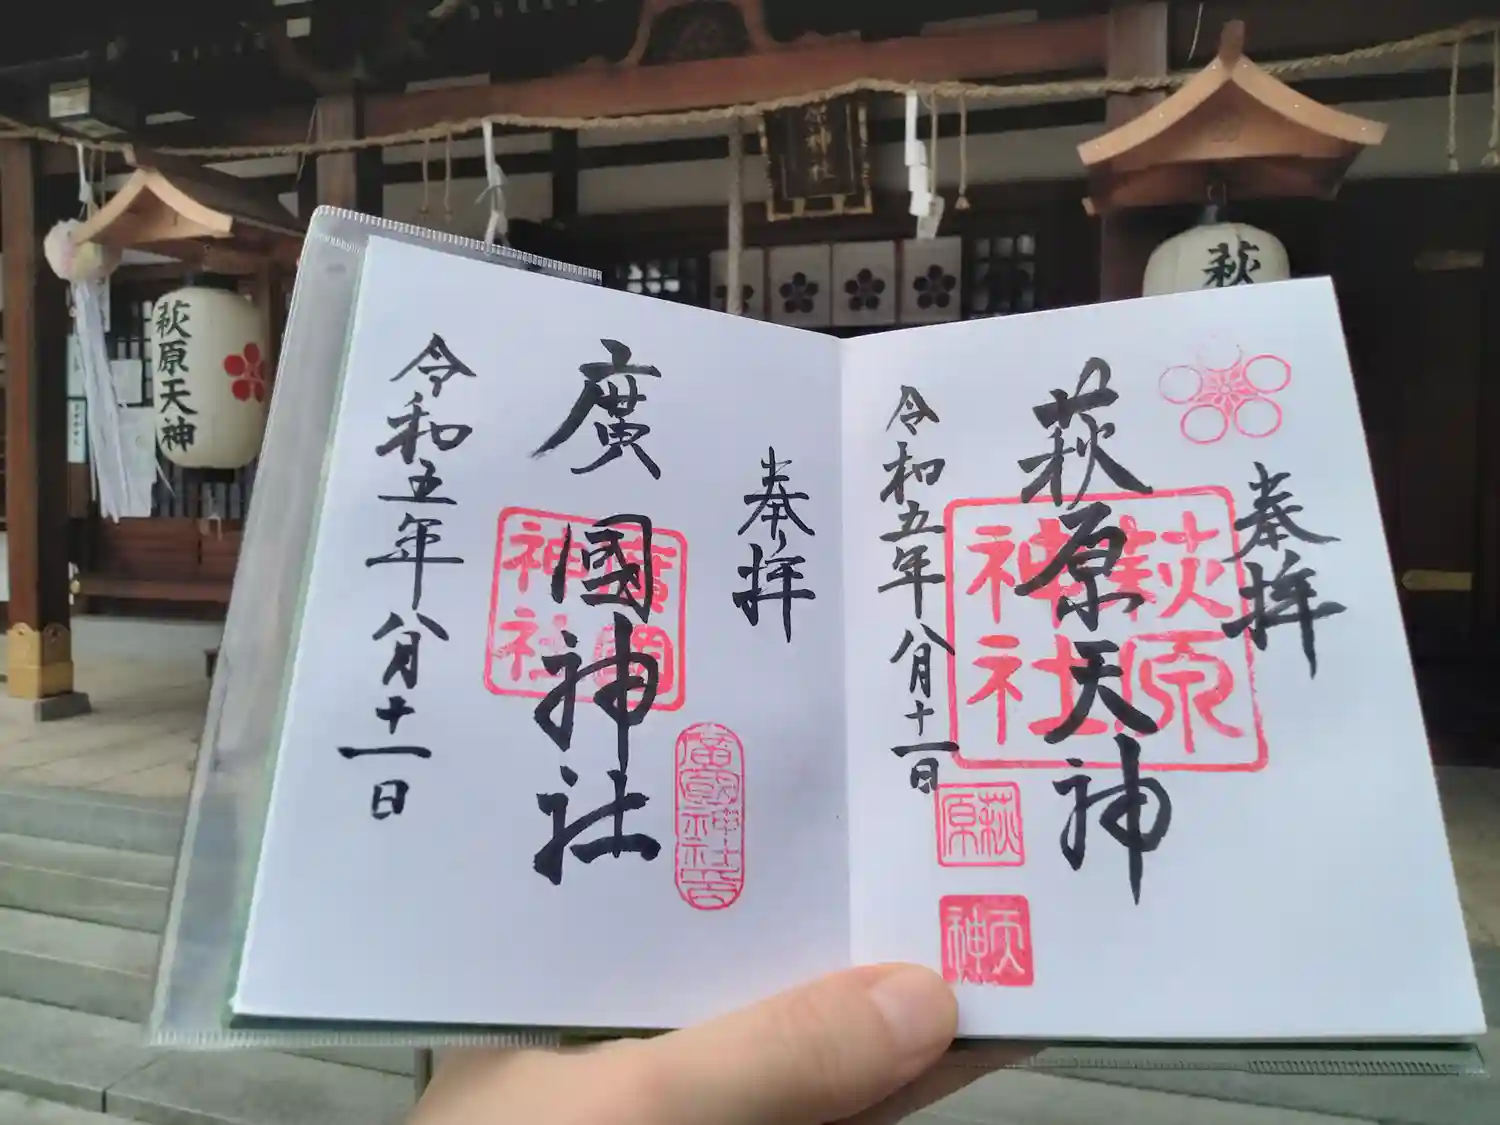 奉拝
萩原天神
令和五年八月十一日
萩原
神社
萩原
天神
奉拝
廣國神社
令和五年八月十一日
廣國
神社
廣國神社
萩原天神
萩
原神社